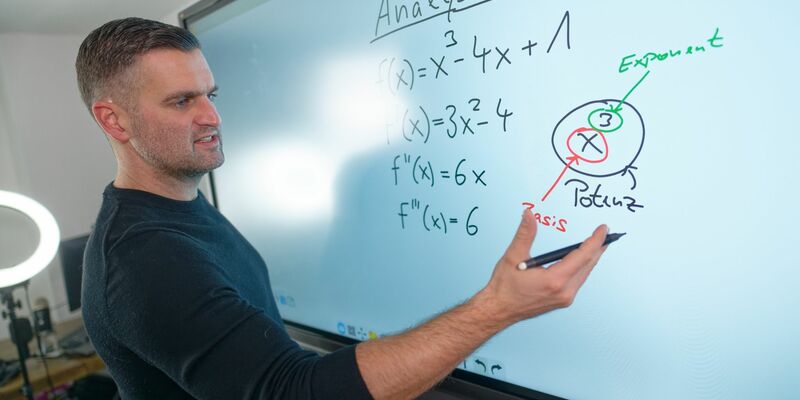 f(x)=x³-4x+1
f'(x)=3x²-4
f''(x)=6x
f'''(x)=6
Exponent
3
x
Potenz
Basis